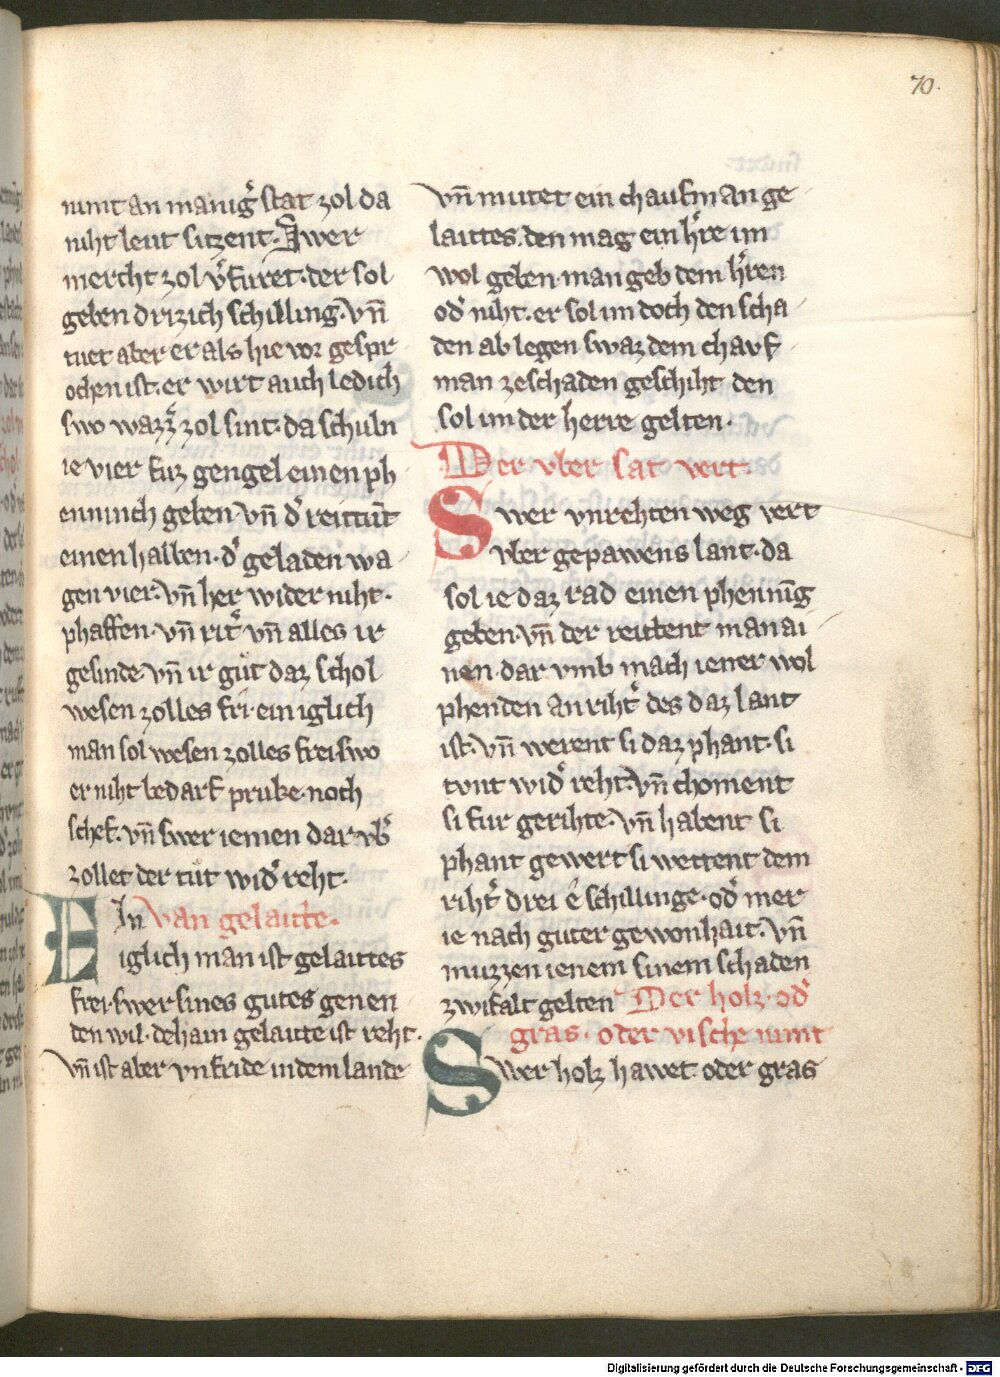 70.
nimt an manig̉ stat zol da
niht leut sitzent. Swer
mercht zol v̉furet. der sol
geben drizich schilling. vn̄
tuet aber er als hie vor gespr
ochen ist. er wirt auch ledich
swo wazz̉ zol sint. da schuln
ie vier fuz gengel einen ph
enninch geben vn̄ d̉ reitt
einen halben. d̉ geladen wa
gen vier. vn̄ her wider niht.
phaffen. vn̄ rit̉ vn̄ alles ir
gesinde. vn̄ ir gůt daz schol
wesen zolles fri. ein iglich
man sol wesen zolles frei. swo
er niht bedarf pruke. noch
schef. vn̄ swer iemen dar vb̉
zollet der tůt wid̉ reht.
EIn van gelaitte.
iglich man ist gelaittes
frei. swer sines gutes genen
den wil. dehain gelaite ist reht.
vn̄ ist aber vnfride in dem lande
vn̄ mutet ein chaufman ge
laittes. den mag ein h̉re im
wol geben. man geb dem h̉ren
od̉ niht. er sol im doch den scha
den ab legen swaz dem chauf
man zeschaden geschiht den
sol im der herre gelten.
Der vber sat vert.
Swer vnrehten weg vert
vber gepawens lant. da
sol ie daz rad einen phennīg
geben. vn̄ der reitent man ai
nen. dar vmb mach iener wol
phenden an riht̉ des daz lant
ist. vn̄ werent si daz phant. si
tvnt wid̉ reht. vn̄ choment
si fur gerihte. vn̄ habent si
phant gewert si wettent dem
riht̉ drei schillinge. od̉ mer
ie nach guter gewonhait. vn̄
muzzen ienem sinem schaden
zwifalt gelten Der holz. od̉
gras. oder vische nimt
Swer holz hawet. oder gras
Digitalisierung gefördert durch die Deutsche Forschungsgemeinschaft - DFG